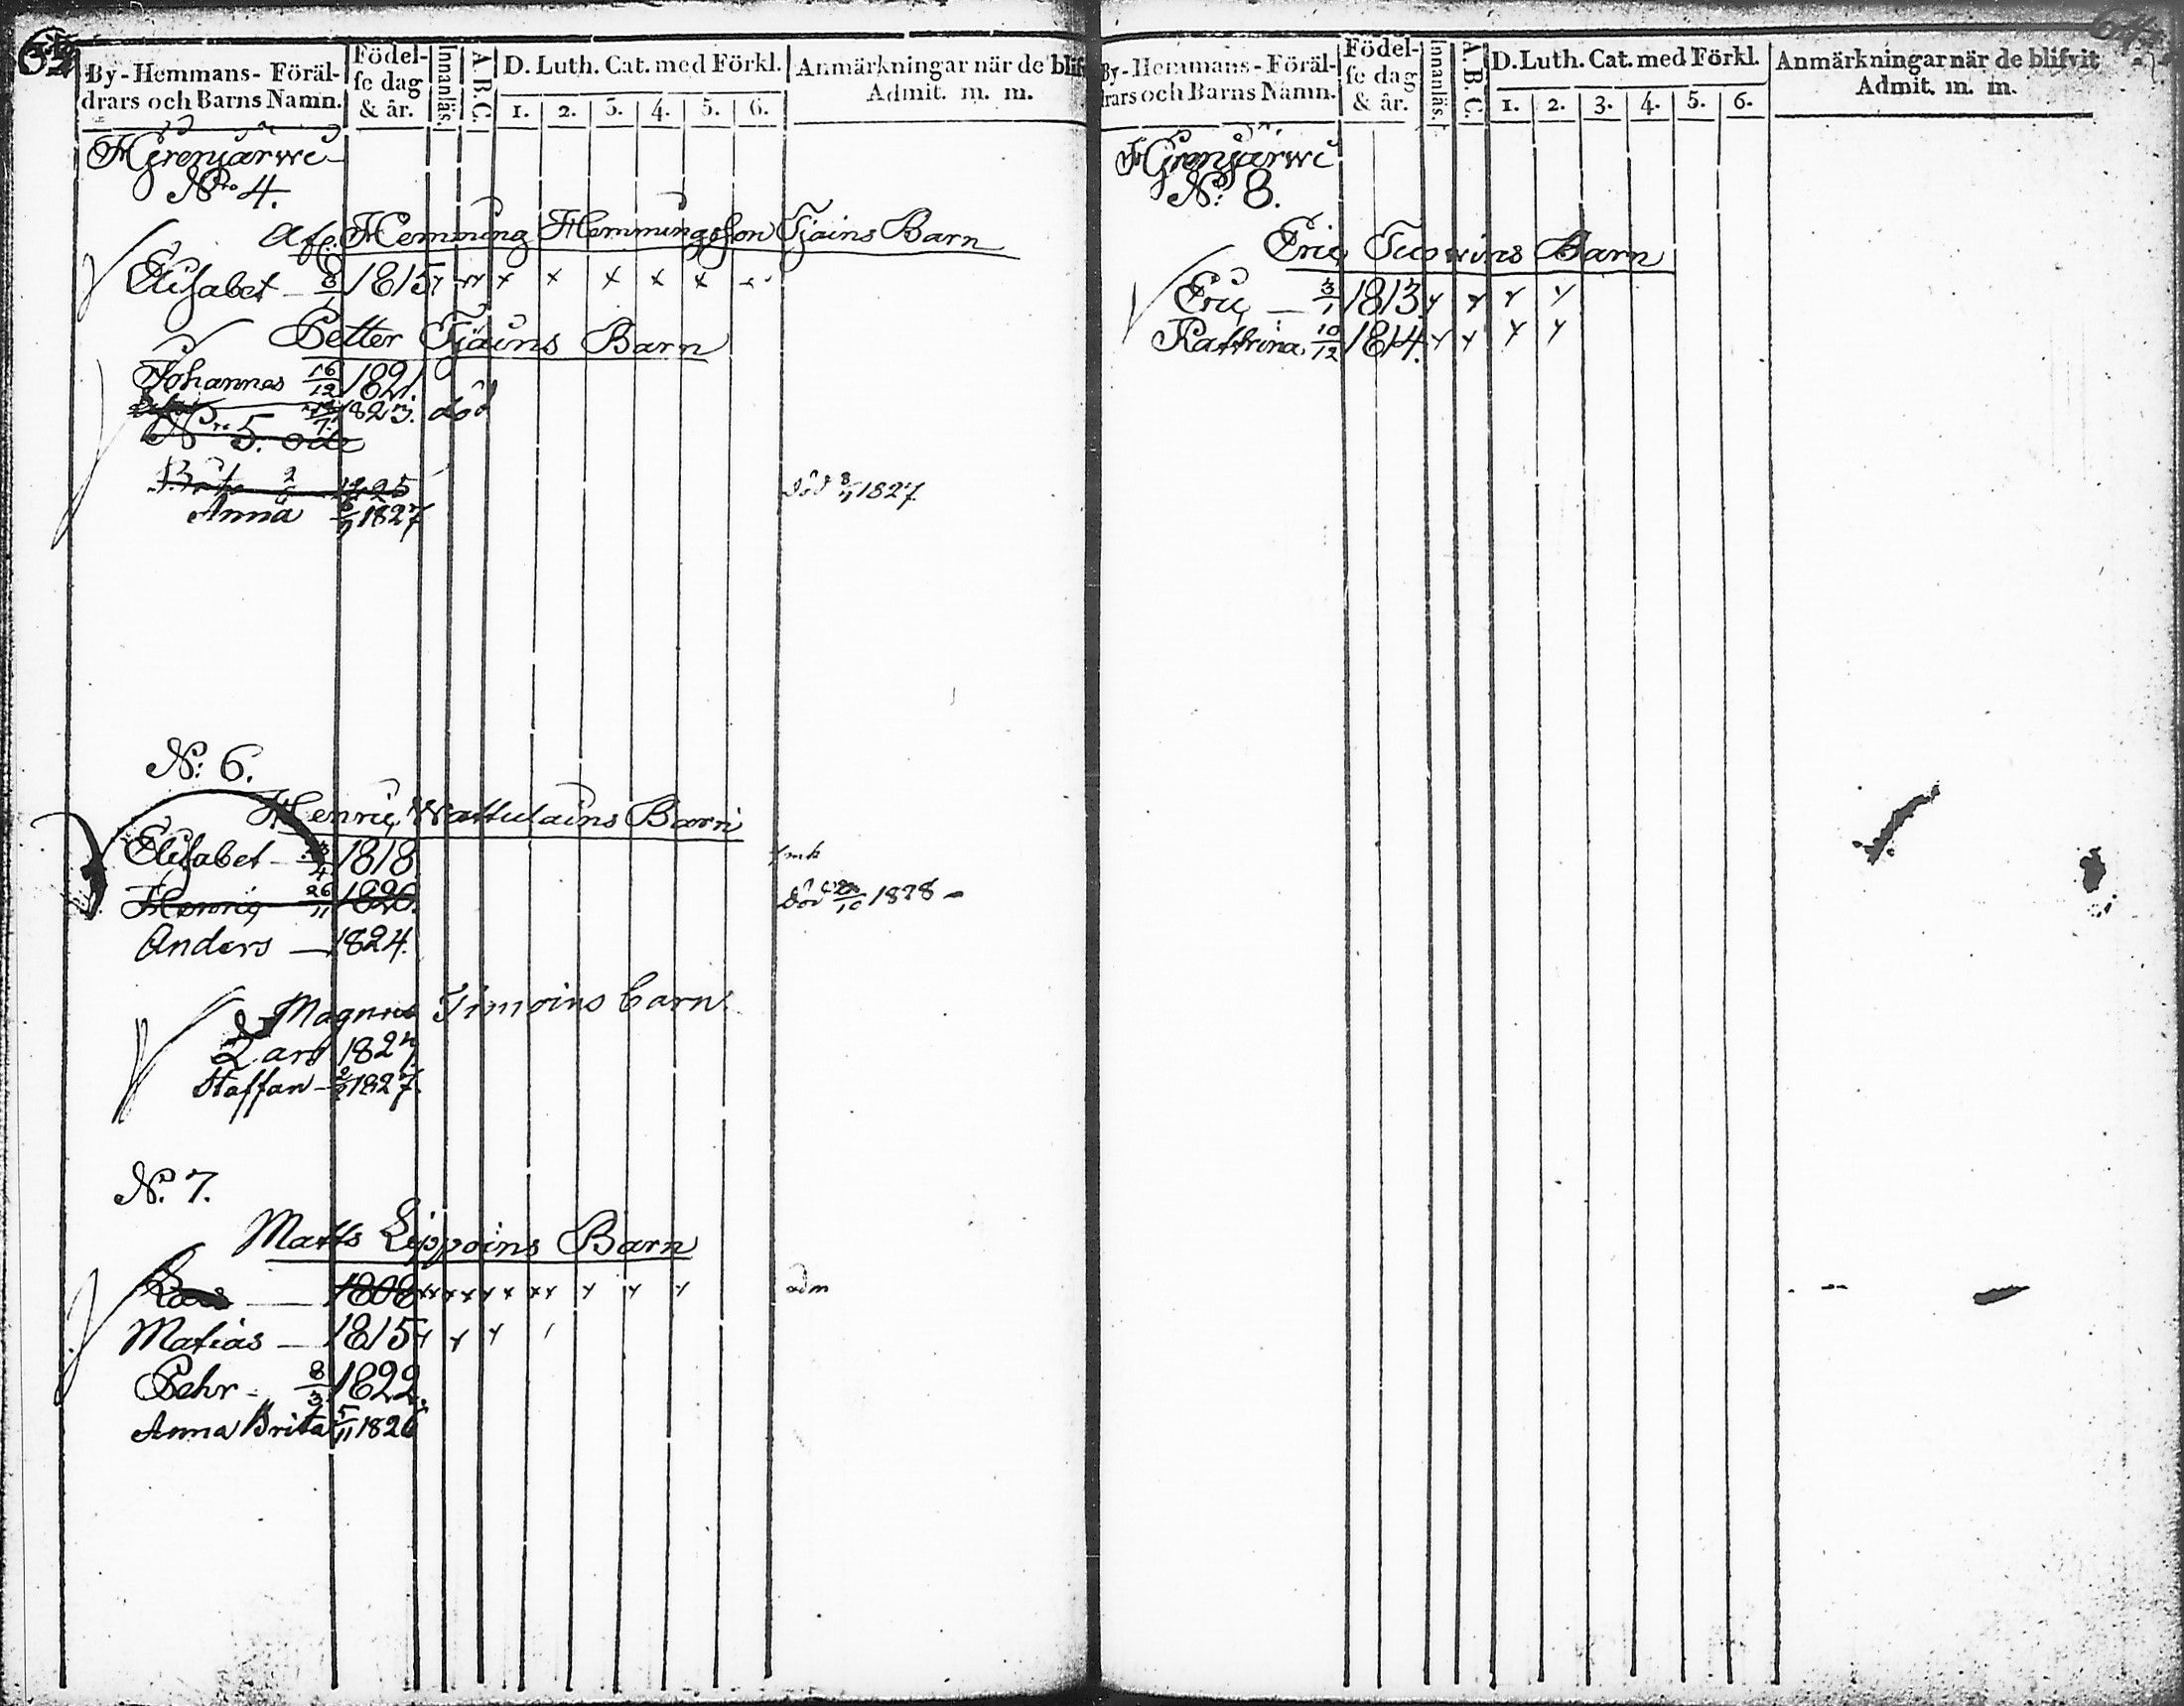 By-Hemmans-Föräl-
drars och Barns Namn.
Födel-
se dag
& år.
Innanläs.
A.B.C.
D. Luth. Cat. med Förkl.
1. 2. 3. 4. 5. 6.
Anmärkningar när de blif
Admit. m. m.
No 4.
Hemming Hemmingsson Tiains Barn
Elisabet 8/1 1815 x x x x x x
Petter Tiains Barn
Johannes 16/12 1821.
1823. död
No 5. öde
1825 död 8/9 1827
Anna 1827
N: 6.
Henric Wattulains Barn
Elisabet 1818
Henric 26/11 1826. död 1828
Anders 1824.
Magnus Timoins barn
Lars 1827
Staffan 1827.
N. 7.
Matts Lippoins Barn
Lars 1808 adm
Matias 1815
Pehr 8/3 1822.
Anna Brita 5/11 1826
64
By-Hemmans-Föräl-
drars och Barns Namn.
Födel-
se dag
& år.
Innanläs.
A.B.C.
D. Luth. Cat. med Förkl.
1. 2. 3. 4. 5. 6.
Anmärkningar när de blifvit
Admit. m. m.
N: 8.
Eric Barn
Eric 3/1 1813.
Kathrina 10/12 1814.